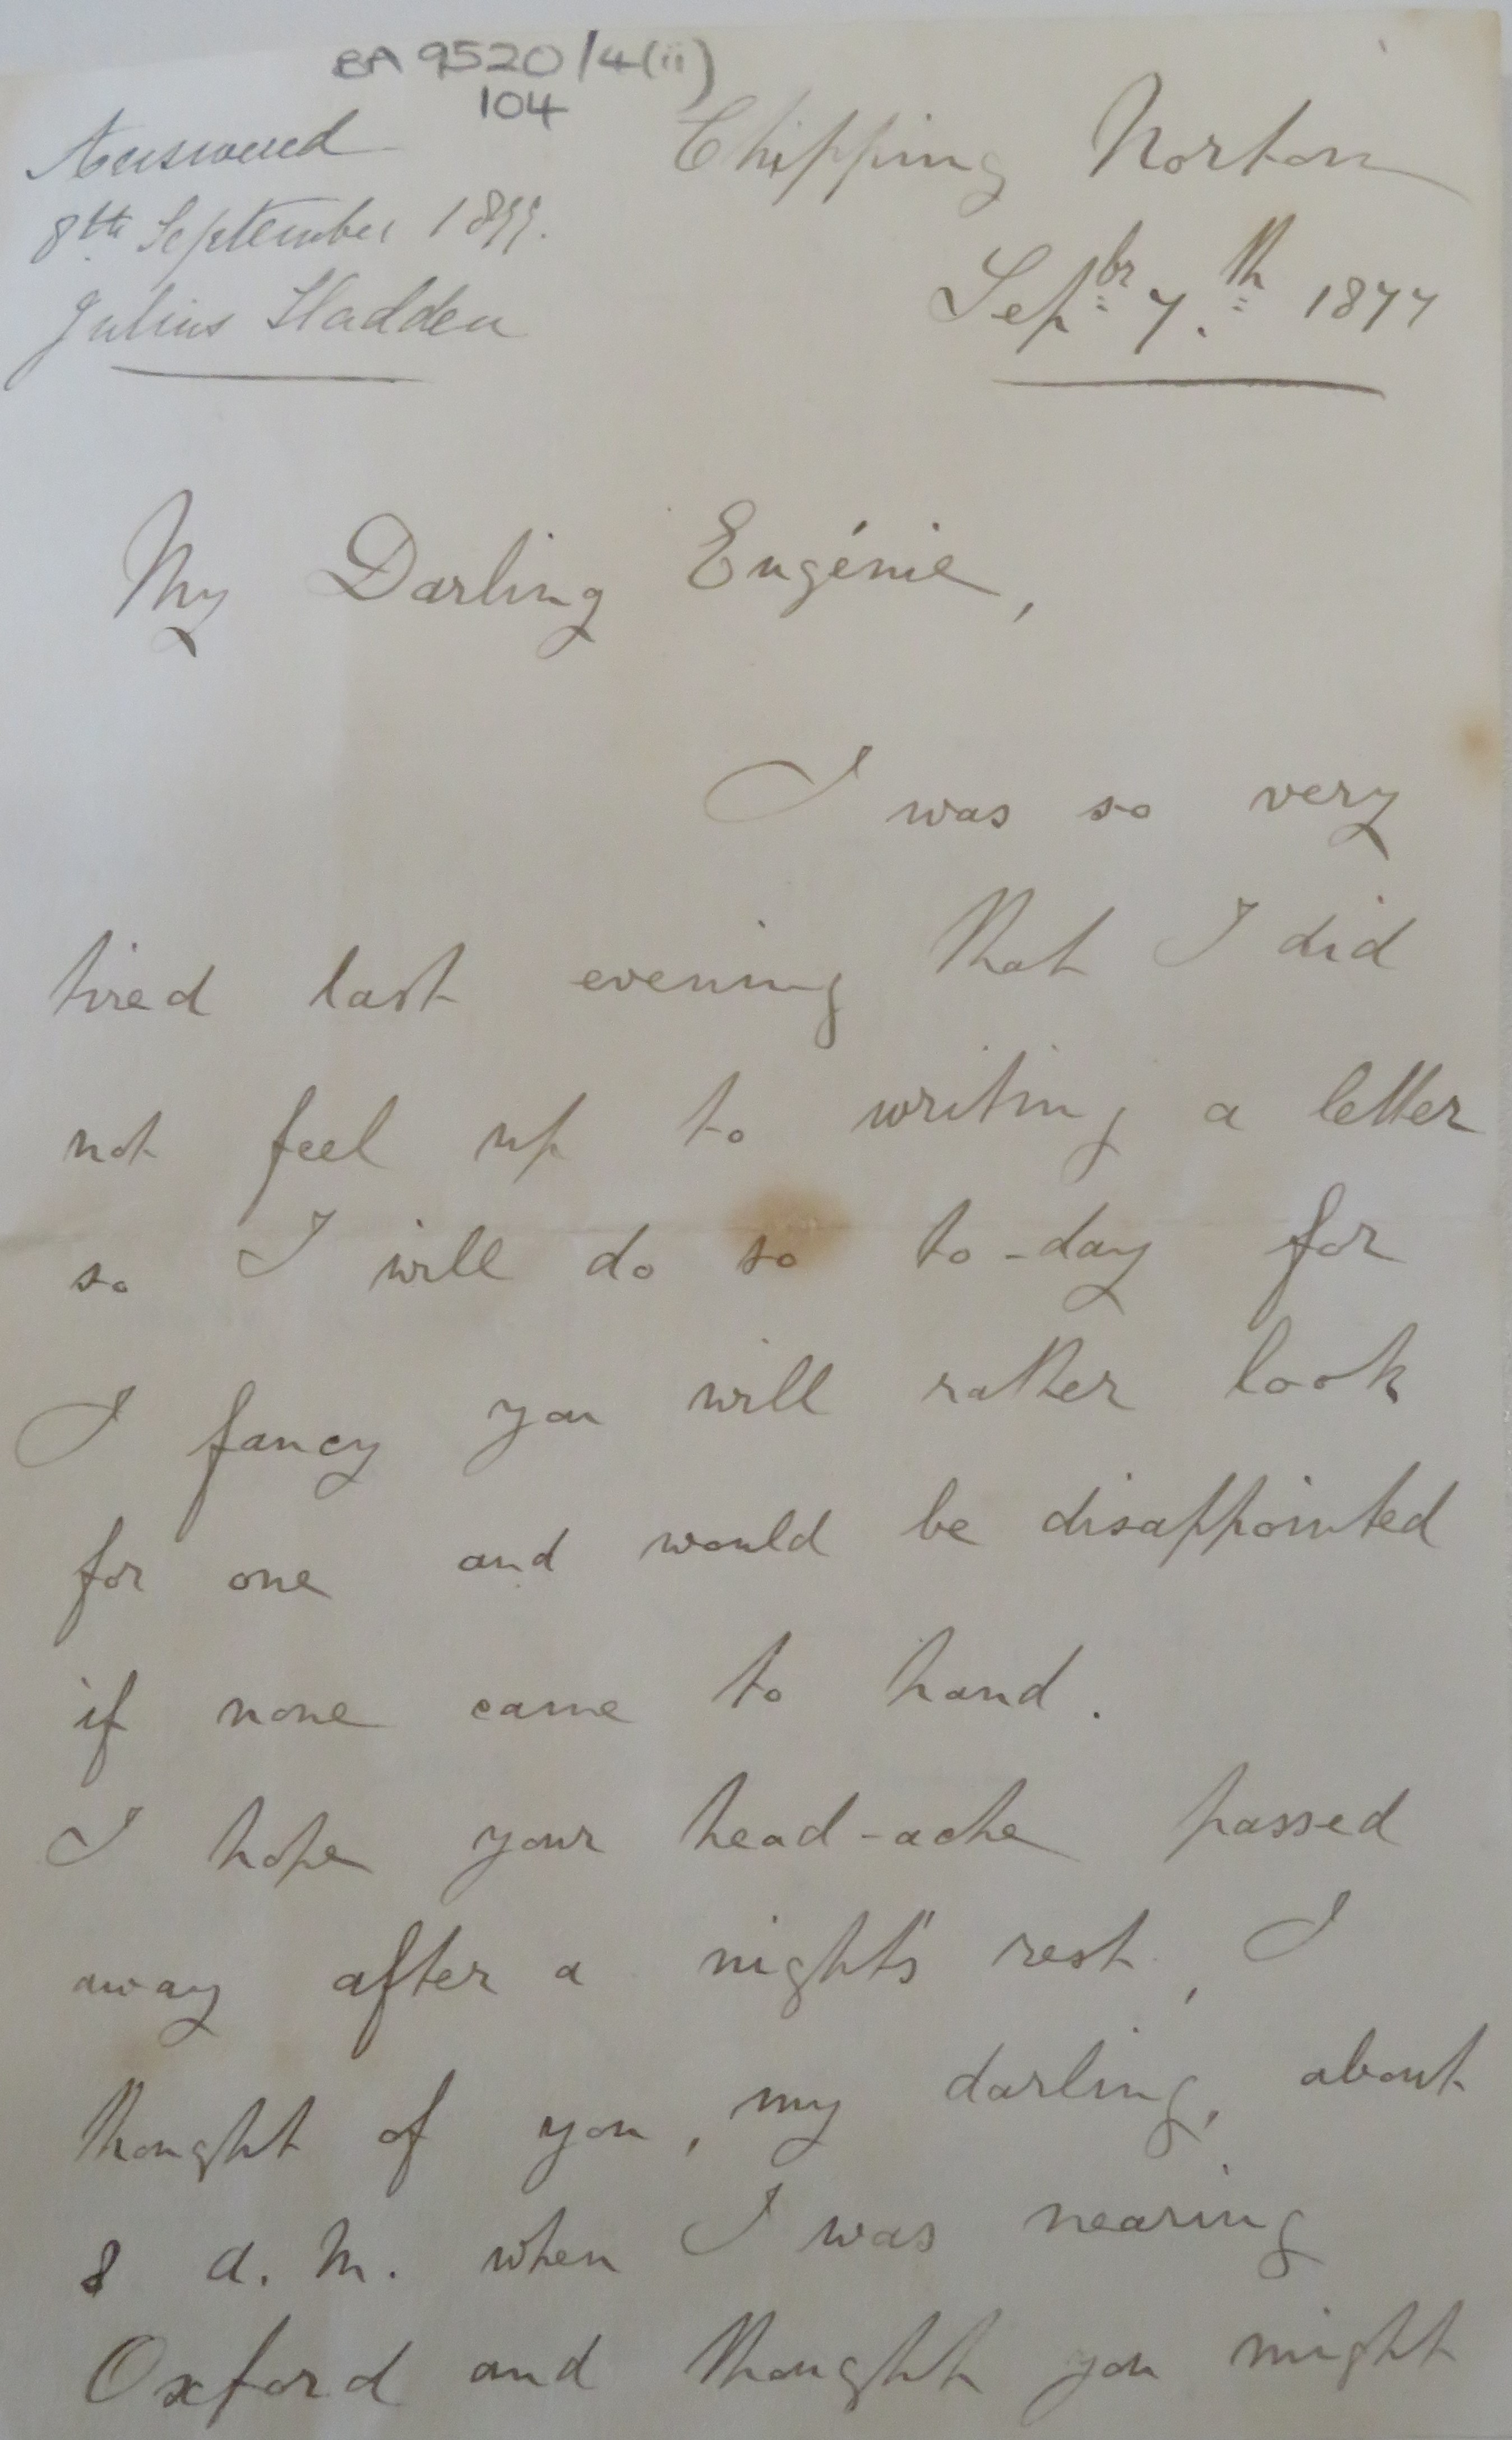 BA 9520/4(ii)
104
Answered
8th September 1877.
Julius Sladden
Chipping Norton
Sepbr 7.th 1877
My Darling Eugénie,
I was so very
tired last evening that I did
not feel up to writing a letter
so I will do so to-day for
I fancy you will rather look
for one and would be disappointed
if none came to hand.
I hope your head-ache passed
away after a night's rest, I
thought of you, my darling, about
8 a.m. when I was nearing
Oxford and thought you might